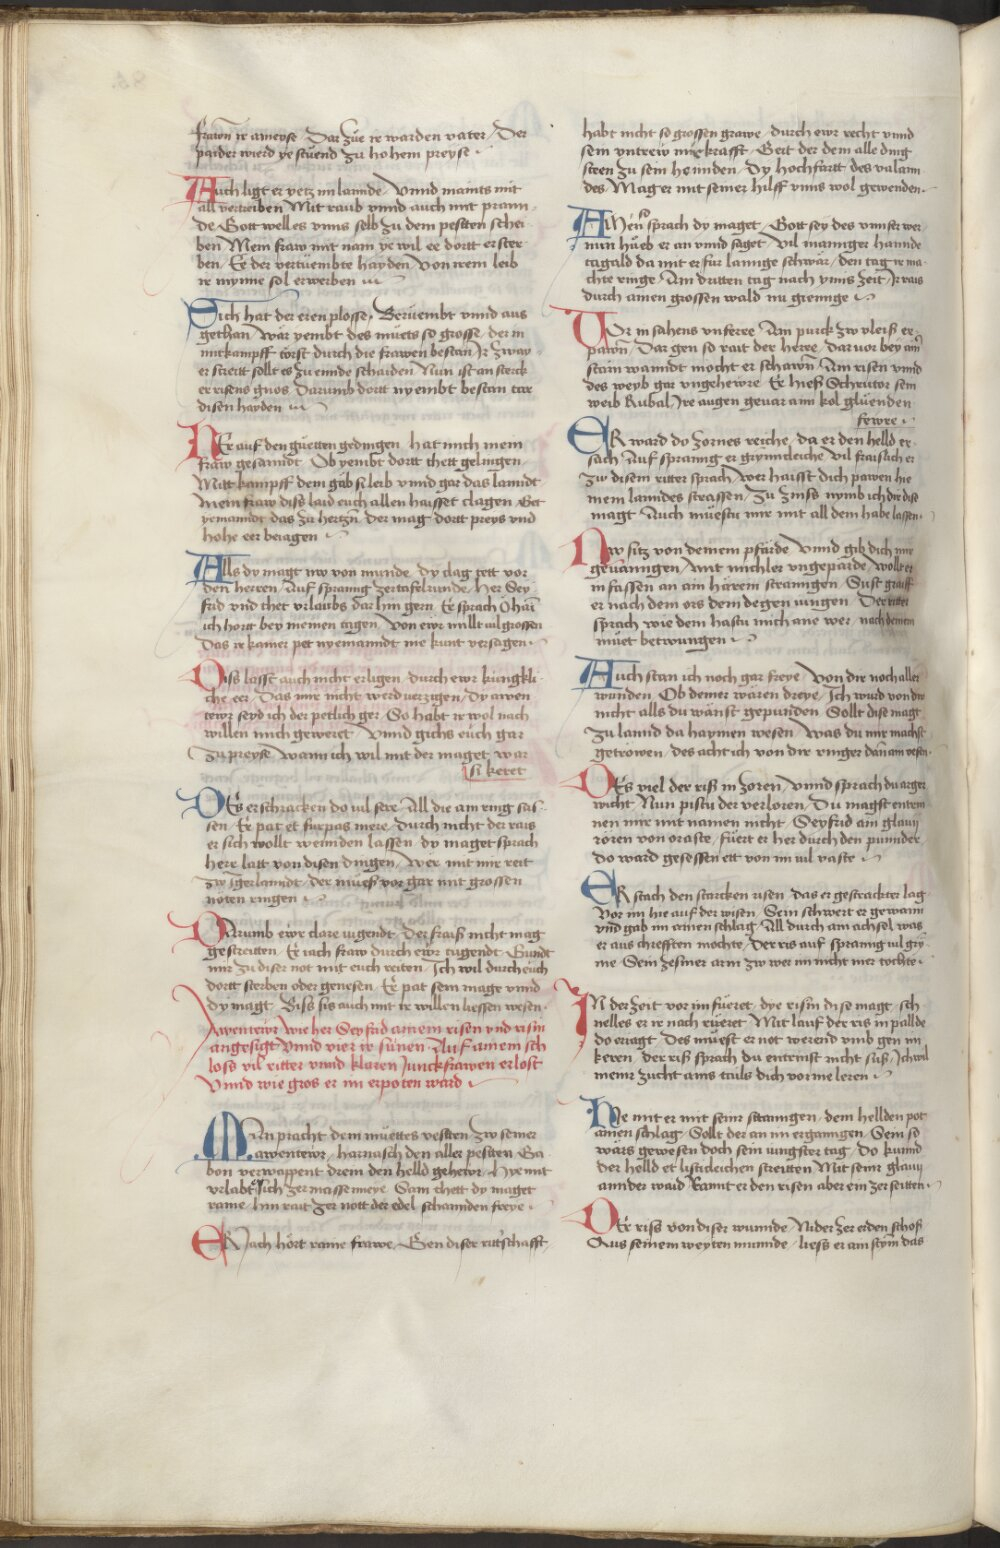 frawn ir ameyse / Dar zue ir warden vater / Der
paider wierd ye stuend zu hohem preyse
Auch ligt er yetz im lannde / Vnnd maints mit
all vertreiben Mit raub vnnd auch mit prann
de Gott welles vnns selb zu dem pessten schei
ben Mein fraw mit nam ye wil ee dortt erster
ben / Ee der vertuembte hayden / Von irem leib
ir mynne sol erwerben
Sich hat der eren plosse / Beruembt vnnd aus
gethan / Wär yembt des muets so grosse / der in
mitkampff törst durch die frawen bestan Ir zway
er streitt sollt es zu ennde schaiden Nun ist an sterck
er risens gnos Darumb dortt nyembt bestan tar
disen hayden
Er auf den guetten gedingen / hat mich mein
fraw gesanndt / Ob yembt dortt thett gelingen
Mitt kampff dem gäb si leib vnnd gar das lanndt
Mein fraw diss laid euch allen haisset clagen / Get
yemanndt das zu hertzn / der mag dortt preys vnd
hohe eer beiagen
Alls dy magt nw von munde / dy clag tett vor
den herren / Auf spranng zer tafelrunde / Her Sey
frid vnd thet vrlaubs dar hin gern / Er sprach O hati
ich hortt bey meinen tagen / Von ewr millt vil grossen
Das ir kainer pet nyemanndt nie kunt versagen
Diss lasst auch nicht erligen / durch ewr küngkli
che eer / Das mir nicht werd verzigen / dy awen
tewr seyd ich der petlich ger / So habt ir wol nach
willen mich geweret / Vnnd gichs euch gar
zu preyse / wann ich wil mit der maget / war
si keret
Des erschracken do vil sere / All die am ring sas
sen / Er pat et fürpas mere / durch nicht der rais
er sich wollt wennden lassen / dy maget sprach
herr latt von disen dingen / Wer mit mir reit
zw Igerlanndt / der muess vor gar mit grossen
nöten ringen
Darumb ewr clare iugendt / Der frais nicht mag
gestreitten / Er iach fraw durch ewr tugendt / Gundt
mir zu diser not mit euch reiten / Ich wil durch euch
dortt sterben oder genesen / Er pat sein mage vnnd
dy magt / Biss sis auch mit ir willen liessen wesen
Awentewr wie her Seyfrid ainem risen vnd risin
angesigt vnnd vier ir sünen / Auf ainem sch
loss vil ritter vnnd klaren Junckfrawen erlost
Vnnd wie gros er im erpoten ward
Man pracht dem muettes vessten / zw seiner
awentewr / harnasch den aller pessten / Ga
bon verwappent drein den helld gehewr / Hye mit
vrlabt sich zer massenneye / Sam thett dy maget
raine / hin rait zer nott der edel schannden freye
Er iach hört raine frawe / Gen diser ritterschafft
habt nicht so grossen grawe / durch ewr recht vnnd
sein vntrew mir krafft / Geit der dem alle ding
steen zu sein hennden / Dy hochfartt des valant
des Mag er mit seiner hilff vnns wol gewenden
Amen sprach dy maget / Gott sey des vnnser wer
nun hueb er an vnnd saget / Vil manniger hannde
tagald da mit er für lannge schwär / den tag ir ma
chte ringe / Am dritten tag nach ymis zeit / Ir rais
durch ainen grossen wald nu gienge
Vor in sahens vnferre / Ain purck zw vleiss er
pawn / Dar gen so rait der herre / dar vor bey ainr
stain wanndt mocht er schawn / Ain risen vnnd
des weyb gar vngehewre / Er hiess Schrutor sein
weib Rubal / Ire augen gevar ann kol glüenden
fewre
Er ward dy zornes reiche / da er den helld er
sach / Auf spranng er grymmleiche / Vil fraislich er
zw disem ritter sprach / Wer haisst dich pawen hie
mein lanndes strassen / Zu zinss nymb ich dir dise
magt / Auch muestu mir mit all dein habe lassen
Nw sitz von deinem pfärde / Vnnd gib dich mir
gevanngen / Mit michler vngepärde / Wollt er
in fassen an ain härein stranngen / Sust graiff
er nach dem ors dem degen iungen / Der ritter
sprach wie dem hastu mich ane wer / nach deinem
muet betwungen
Auch stan ich noch gar freye / Von dir noch aller
wunden / Ob deiner wären dreye / Ich wurd von dir
nicht alls du wänst gepunden / Sollt dise magt
zu lannd da haymen wesen / Was du mir machst
getrowen / des acht ich von dir ringer dann ain vesen
Des viel der riss in zoren / Vnnd sprach du arger
wicht / Nun pistu der verloren / Du magst entrin
nen mir mit namen nicht / Seyfrid ain glauy
rören von oraste / fuert er her durch den punnder
do ward gesessen ett von im vil vaste
Er stach den starcken risen / das er gestrackter lag
Vor im hie auf der wisen / Sein schwert er gewann
vnd gab im ainen schlag / All durch ain achsel was
er aus chrefften mochte / Der ris auf spranng vil gry
me / Sein zesmer arm zw wer im nicht mer tochte
In der zeit vor im fueret / dye risin dise magt / sch
nelles er ir nach rueret / Mit lauf der ris in pallde
do eriagt / Des muesst er not werend vnnd gen im
keren / der riss sprach du entrinst nicht suss / Ich wil
meinr zucht ains tails dich vor me leren
Hie mit er mit seinr stanngen / dem hellden pot
ainen schlag / Sollt der an im erganngen / Sein so
wärs gewesen doch sein iungster tag / Do kunnd
der helld et listicleichen streitten / Mit seinr glauy
annder waid / Rannt er den risen aber ein zer seitten
Der riss von diser wunnde / Nider zer erden schoss
Aus seinem weyten munnde / liess er ain stym das